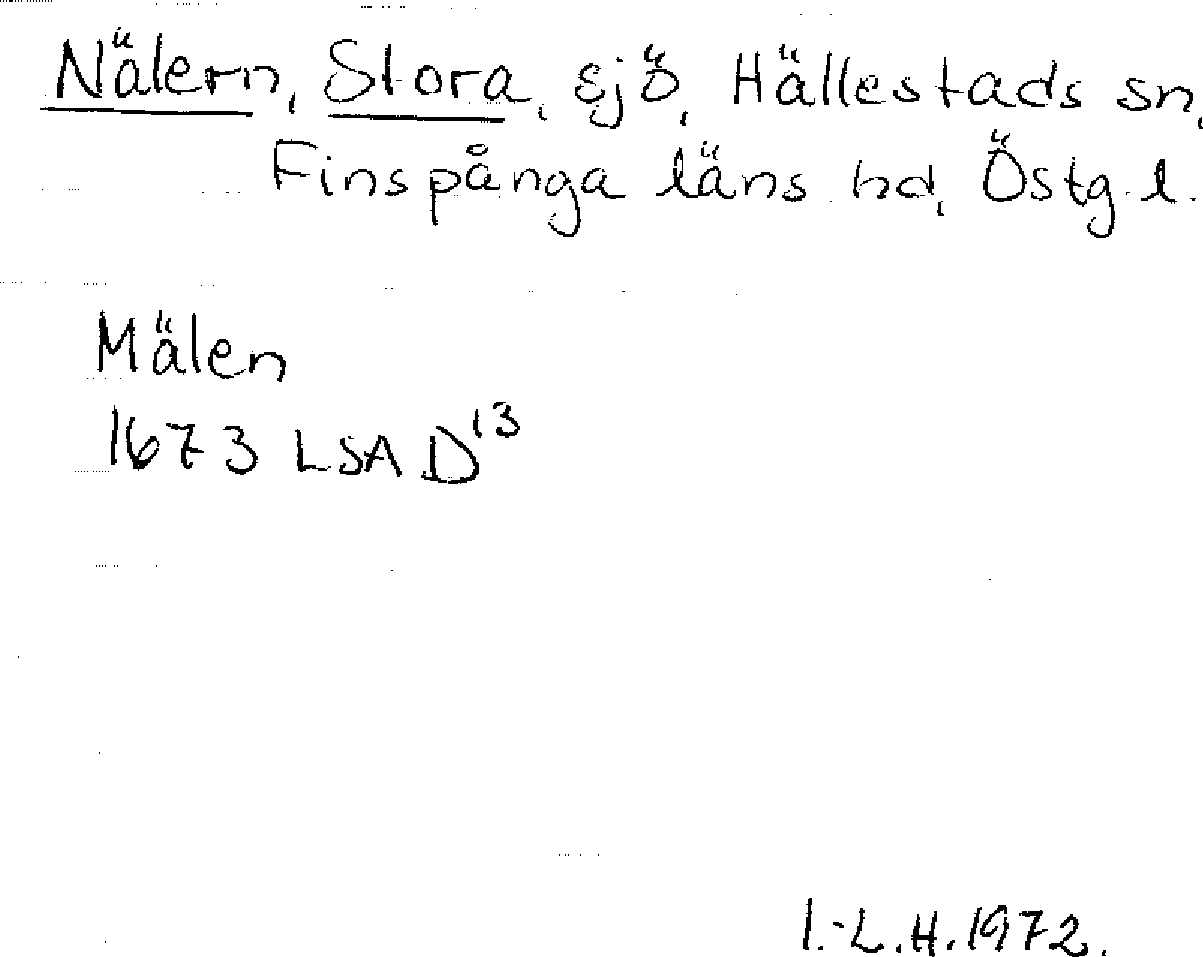 Nälern, Stora, sjö, Hällestads sn,
Finspånga läns hd, Östg. l.
Mälen
1673 LSA D¹³
I.-L.H. 1972.